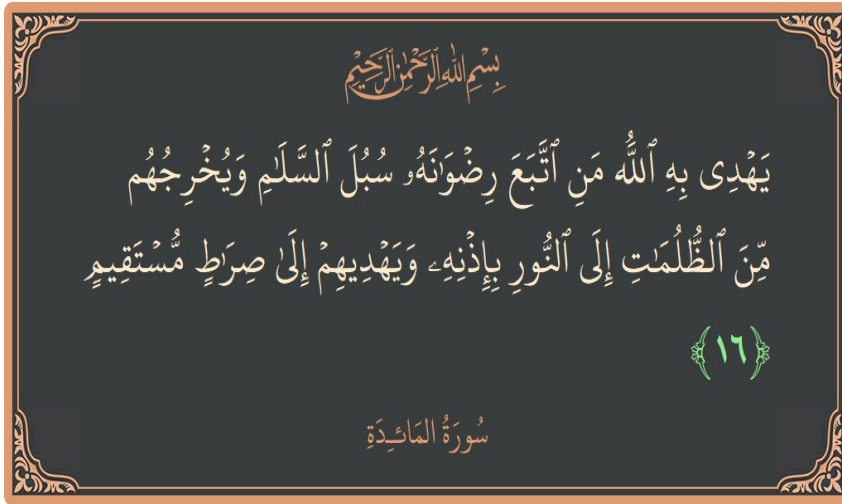 بِسْمِ اللَّهِ الرَّحْمَٰنِ الرَّحِيمِ
يَهْدِى بِهِ ٱللَّهُ مَنِ ٱتَّبَعَ رِضْوَٰنَهُۥ سُبُلَ ٱلسَّلَٰمِ وَيُخْرِجُهُم
مِّنَ ٱلظُّلُمَٰتِ إِلَى ٱلنُّورِ بِإِذْنِهِۦ وَيَهْدِيهِمْ إِلَىٰ صِرَٰطٍ مُّسْتَقِيمٍ
﴿١٦﴾
سُورَةُ المَائـِدَةِ